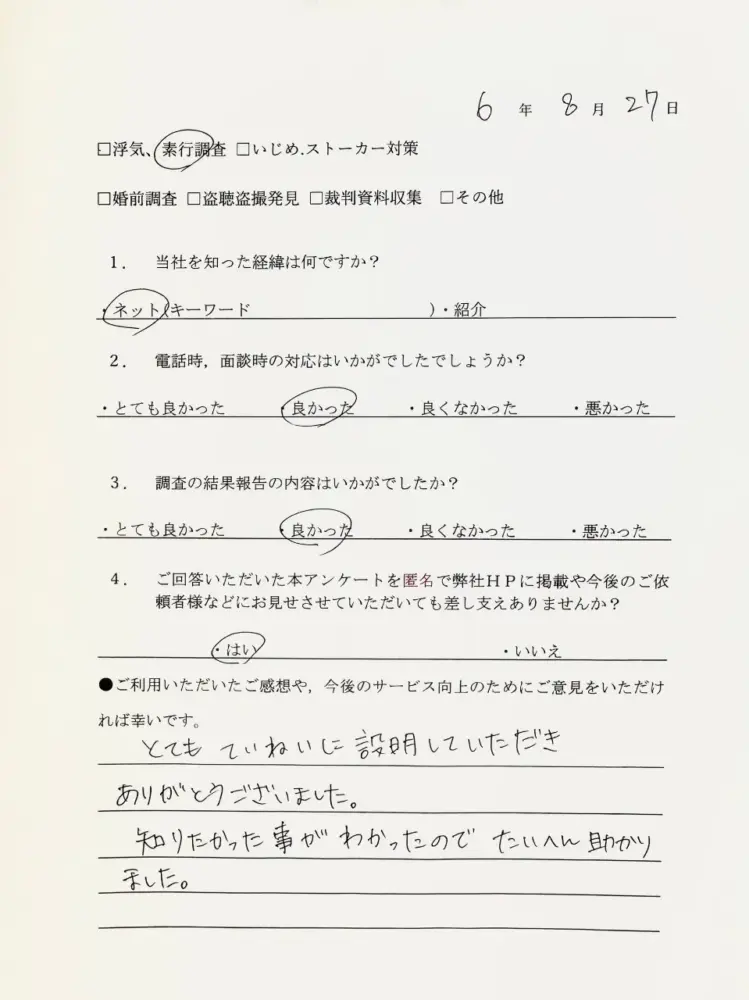 6年8月27日
□浮気、素行調査 □いじめ.ストーカー対策
□婚前調査 □盗聴盗撮発見 □裁判資料収集 □その他
1. 当社を知った経緯は何ですか？
・ネット(キーワード )・紹介
2. 電話時，面談時の対応はいかがでしたでしょうか？
・とても良かった ・良かった ・良くなかった ・悪かった
3. 調査の結果報告の内容はいかがでしたか？
・とても良かった ・良かった ・良くなかった ・悪かった
4. ご回答いただいた本アンケートを匿名で弊社HPに掲載や今後のご依
頼者様などにお見せさせていただいても差し支えありませんか？
・はい ・いいえ
●ご利用いただいたご感想や，今後のサービス向上のためにご意見をいただけ
れば幸いです。
とても ていねいに 説明していただき
ありがとうございました。
知りたかった事が わかったので たいへん 助かり
ました。